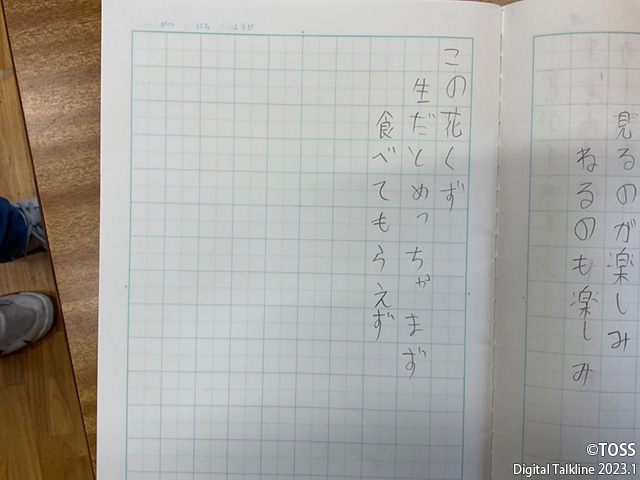 見るのが楽しみ
ねるのも楽しみ
この花くず
生だとめっちゃまず
食べてもらえず
がつ にち ようび
©TOSS
Digital Talkline 2023.1